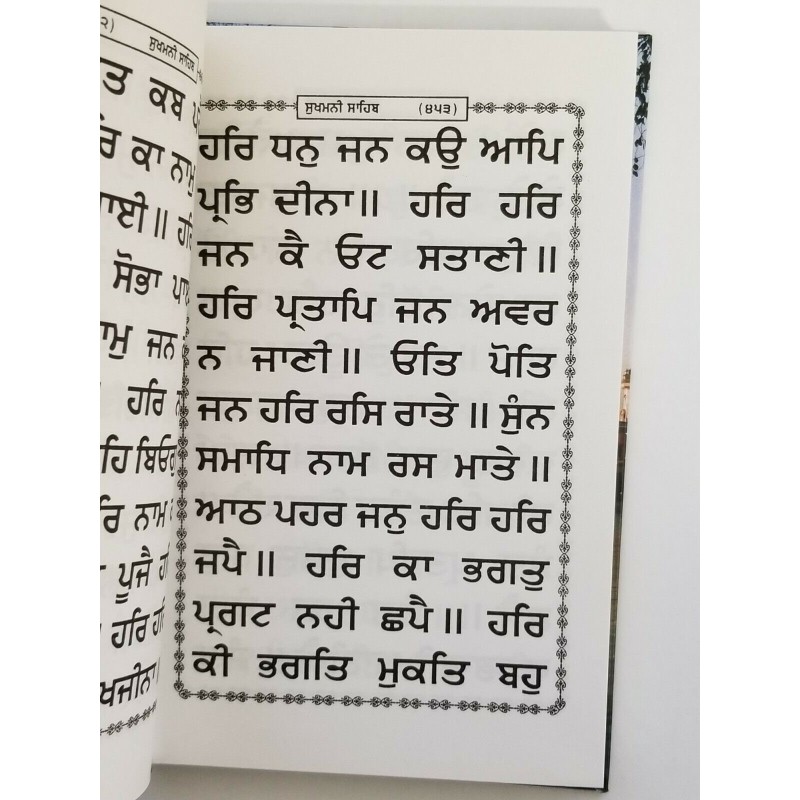 ੨)
ਸੁਖਮਨੀ ਸਾਹਿਬ
ਤ ਕਬ
ਰਿ ਕਾ ਨਾਮੁ
ਾਈ॥
ਸੋਭਾ
ਾਮੁ ਜਨ
ਹਰਿ
ਹਿ ਬਿਓਰੁ
ਰਿ ਨਾਮ
ਪੂਜੈ
ਹਰਿ ਹਰਿ
ਖਜੀਨਾ॥
ਸੁਖਮਨੀ ਸਾਹਿਬ (੪੫੩)
ਹਰਿ ਧਨੁ ਜਨ ਕਉ ਆਪਿ
ਪ੍ਰਭਿ ਦੀਨਾ॥ ਹਰਿ ਹਰਿ
ਜਨ ਕੈ ਓਟ ਸਤਾਣੀ॥
ਹਰਿ ਪ੍ਰਤਾਪਿ ਜਨ ਅਵਰ
ਨ ਜਾਣੀ॥ ਓਤਿ ਪੋਤਿ
ਜਨ ਹਰਿ ਰਸਿ ਰਾਤੇ॥ ਸੁੰਨ
ਸਮਾਧਿ ਨਾਮ ਰਸ ਮਾਤੇ॥
ਆਠ ਪਹਰ ਜਨੁ ਹਰਿ ਹਰਿ
ਜਪੈ॥ ਹਰਿ ਕਾ ਭਗਤੁ
ਪ੍ਰਗਟ ਨਹੀ ਛਪੈ॥ ਹਰਿ
ਕੀ ਭਗਤਿ ਮੁਕਤਿ ਬਹੁ